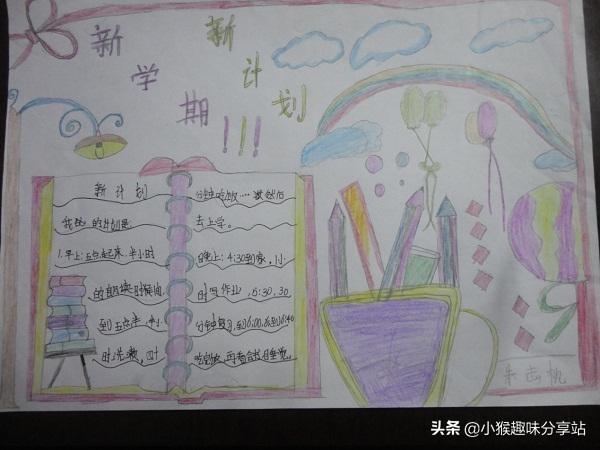 新学期
新计划
!!!
新计划
我的的计划是:
1.早上:五点起来,半小时
的朗读时候由
到五点半,半小
时洗漱,四十
分钟吃饭……然后
去上学。
晚上:4:30到家,1小
时写作业,5:30,30
分钟复习,6:00,6:40
吃晚饭,再看会书睡觉。
头条@小猴趣味分享站